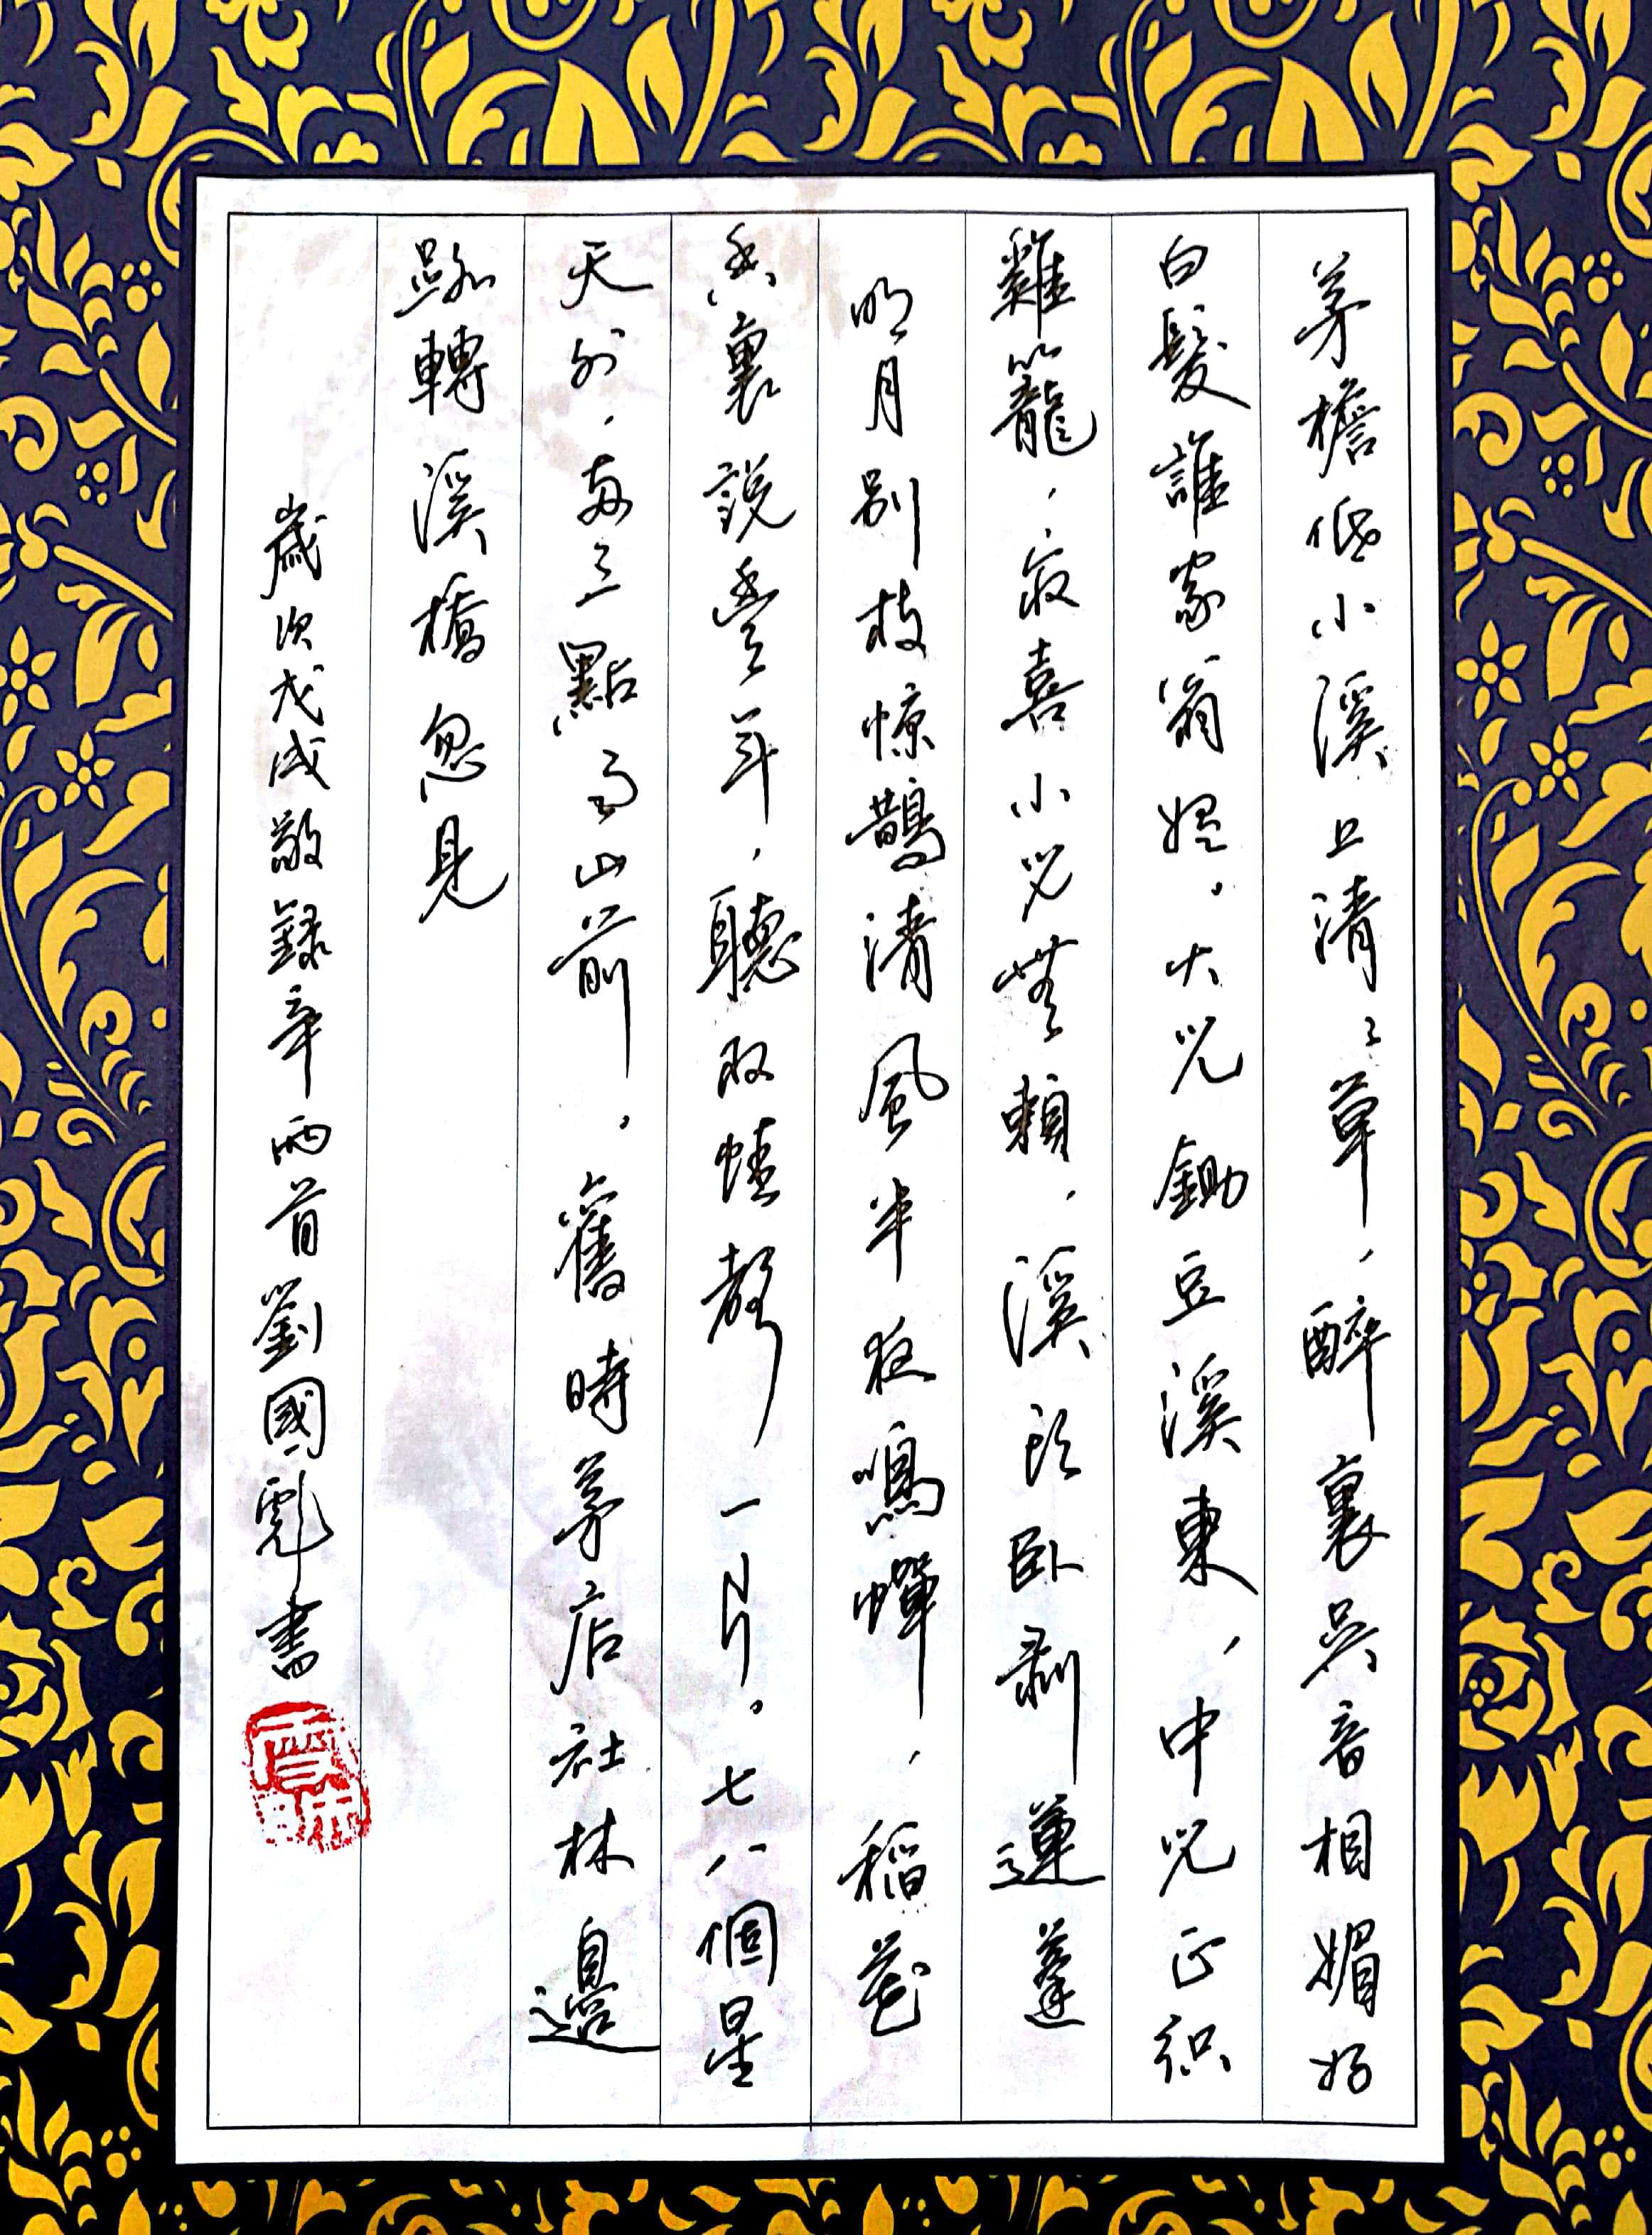 茅檐低小溪上清〻草，醉裏吳音相媚好
白髮誰家翁媼。大兒鋤豆溪東，中兒正織
雞籠，最喜小兒無賴，溪頭臥剝蓮蓬
明月別枝惊鵲清風半夜鳴蟬，稻花
香裏說豐年，聽取蛙聲一片。七八個星
天外，兩三點雨山前。舊時茅店社林邊
路轉溪橋忽見
歲次戊戌敬錄辛詞两首劉國彪書